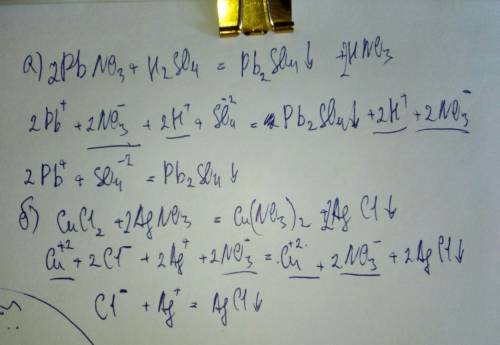 а) 2PbNO₃ + H₂SO₄ = Pb₂SO₄↓ + 2HNO₃
2Pb⁺ + 2NO₃⁻ + 2H⁺ + SO₄⁻² = Pb₂SO₄↓ + 2H⁺ + 2NO₃⁻
2Pb⁺ + SO₄⁻² = Pb₂SO₄↓
б) CuCl₂ + 2AgNO₃ = Cu(NO₃)₂ + 2AgCl↓
Cu⁺² + 2Cl⁻ + 2Ag⁺ + 2NO₃⁻ = Cu⁺² + 2NO₃⁻ + 2AgCl↓
Cl⁻ + Ag⁺ = AgCl↓